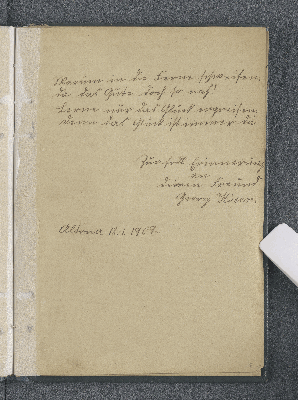 Warum in die Ferne schweifen,
da das Gute doch so nah!
Lerne nur das Glück ergreifen,
denn das Glück ist immer da
Zur Erinnerung
an
deinen Freund
Georg
Altona 1909.